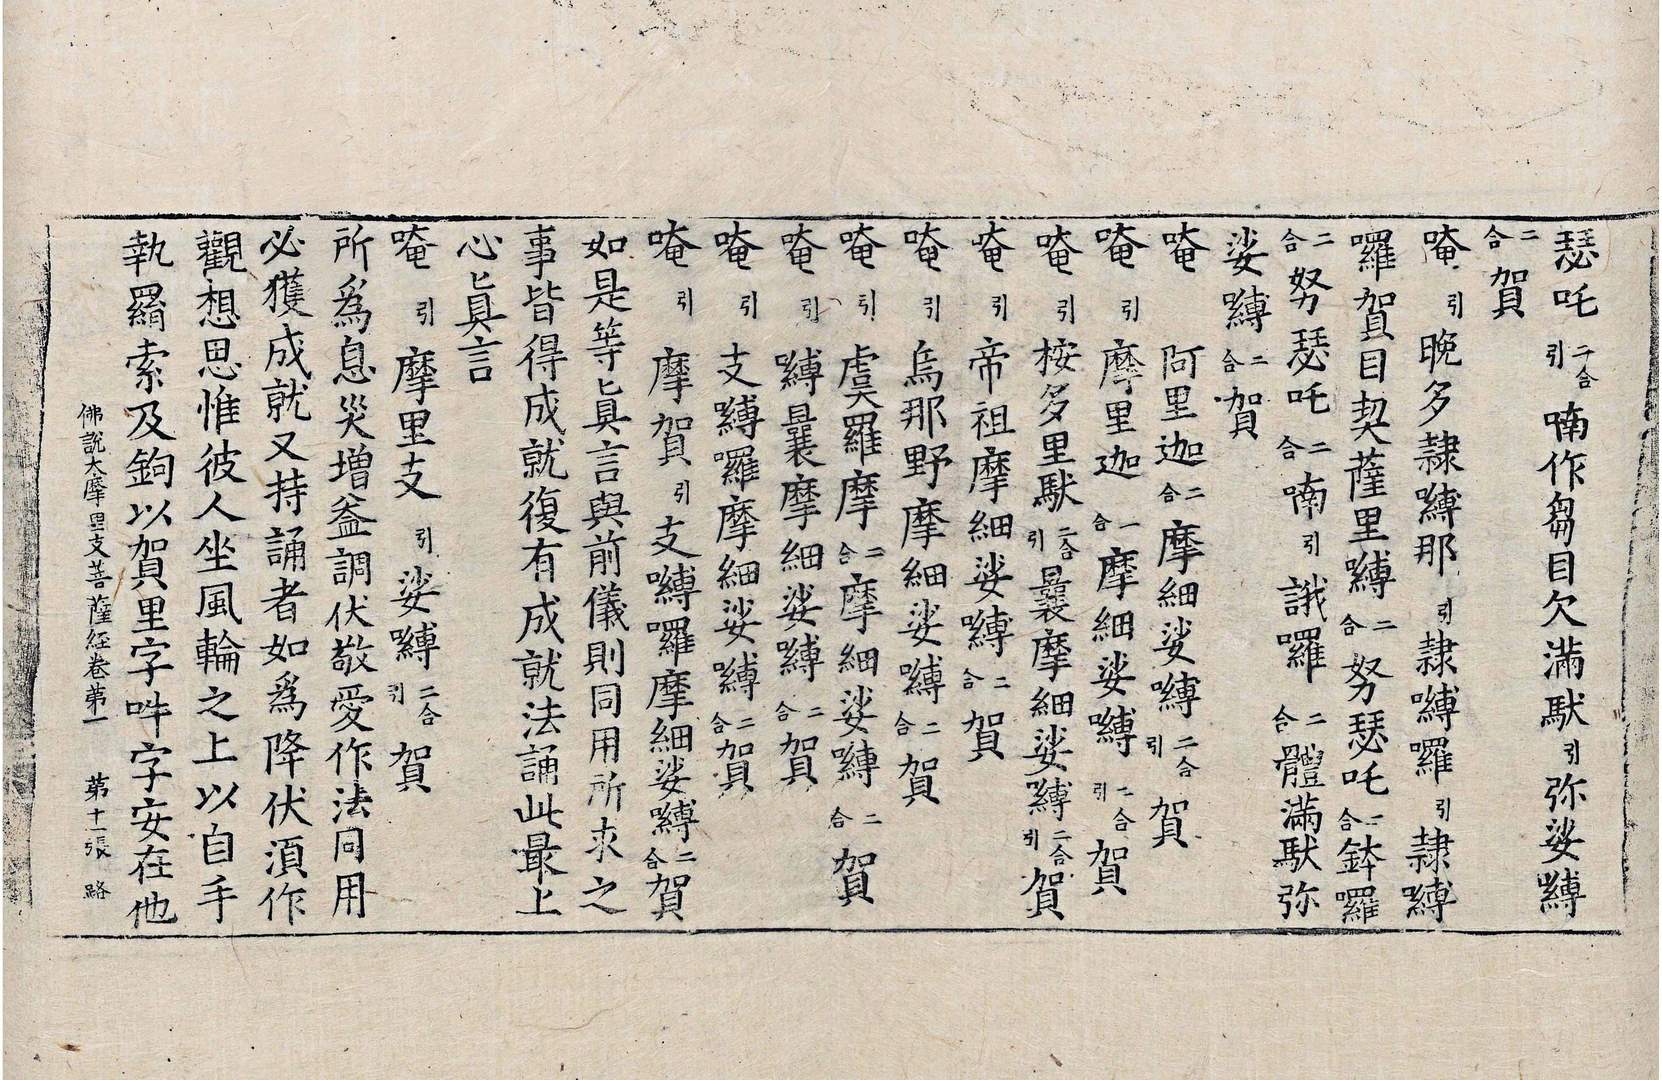 瑟吒二合引喃作芻目欠滿馱引弥娑嚩
二合賀
唵引晚多隷嚩那引隷嚩囉引隷嚩
囉賀目契薩里嚩二合努瑟吒二合鉢囉
二合努瑟吒二合喃引誐囉二合體滿馱弥
娑嚩二合賀
唵阿里迦二合摩細娑嚩二合引賀
唵引摩里迦一合摩細娑嚩二合引賀
唵引桉多里馱二合引曩摩細娑嚩二合引賀
唵引帝祖摩細娑嚩二合賀
唵引烏那野摩細娑嚩二合賀
唵引虞羅摩二合摩細娑嚩二合賀
唵引嚩曩摩細娑嚩二合賀
唵引支嚩囉摩細娑嚩二合賀
唵引摩賀引支嚩囉摩細娑嚩二合賀
如是等眞言與前儀則同用所求之
事皆得成就復有成就法誦此最上
心眞言
唵引摩里支引娑嚩二合引賀
所爲息災增益調伏敬愛作法同用
必獲成就又持誦者如爲降伏須作
觀想思惟彼人坐風輪之上以自手
執羂索及鉤以賀里字吽字安在他
佛說大摩里支菩薩經卷第一　第十一張　路